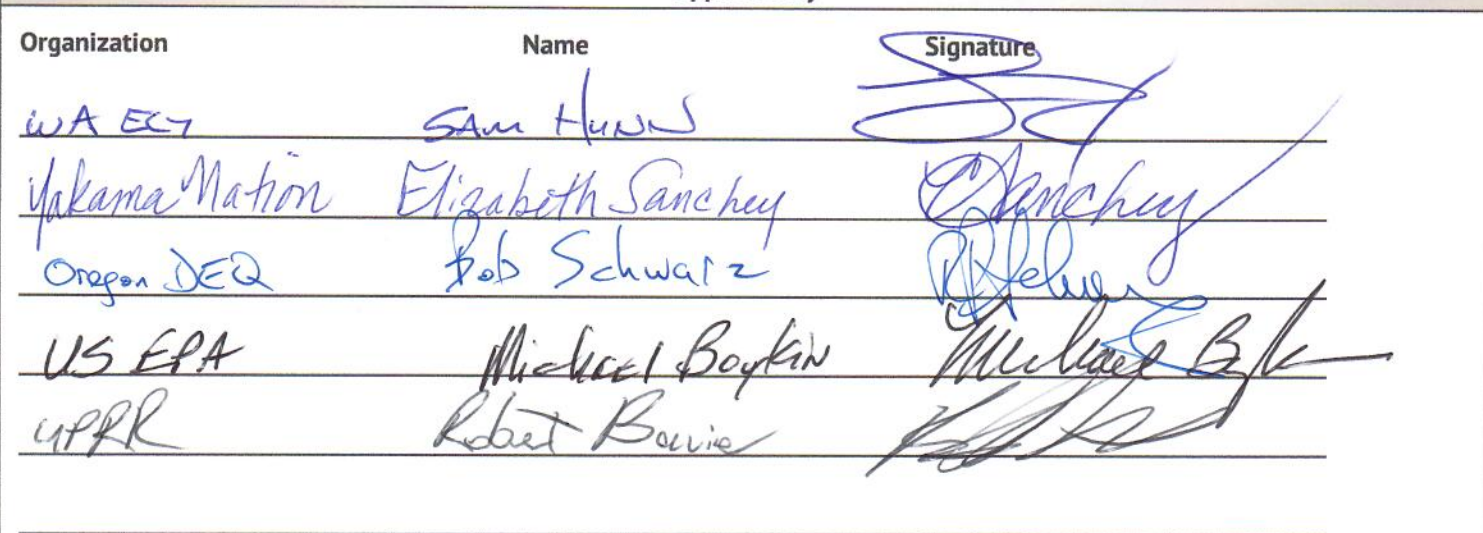 Organization Name Signature
WA ECY SAM HUNN
Yakama Nation Elizabeth Sanchey ESanchey
Oregon DEQ Bob Schwarz
US EPA Michael Boykin Michael Boykin
UPRR Robert